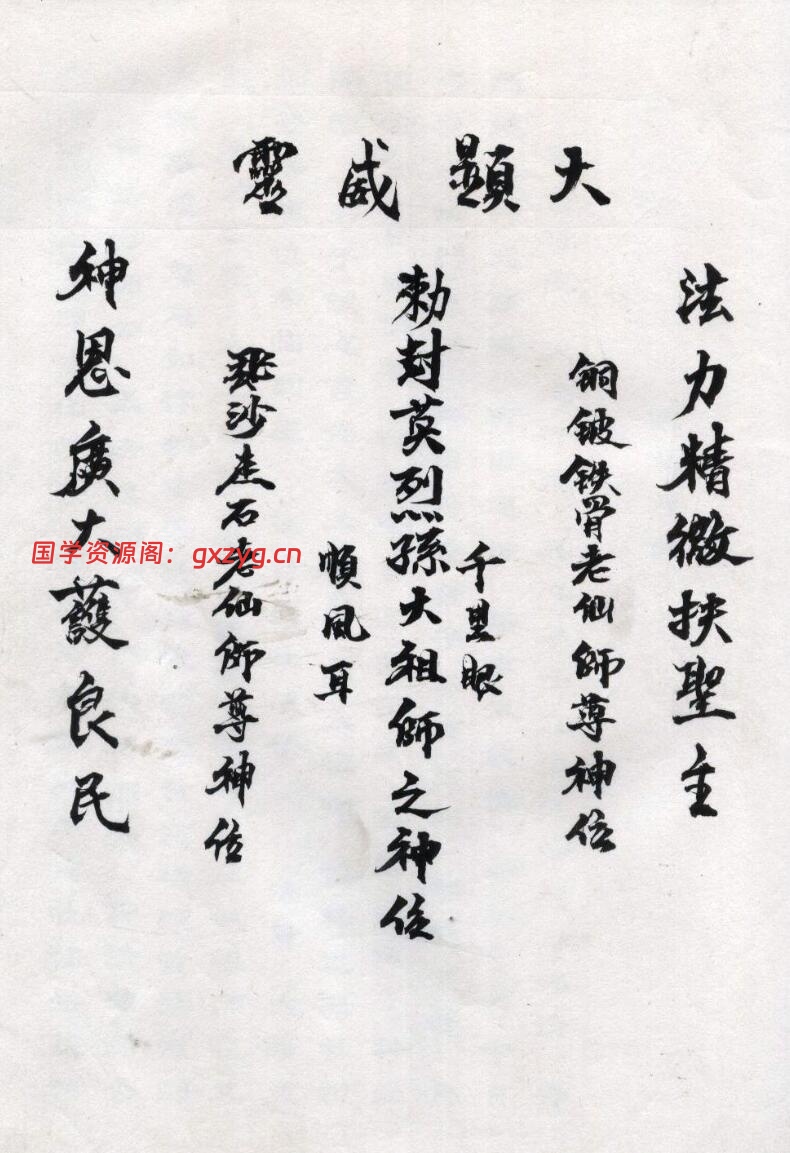 大顯威靈
法力精微扶聖主
銅鈹铁骨老仙師尊神位
千里眼
勅封英烈孫大祖師之神位
順風耳
飛沙走石老仙師尊神位
神恩廣大護良民
国学资源阁：gxzyg.cn